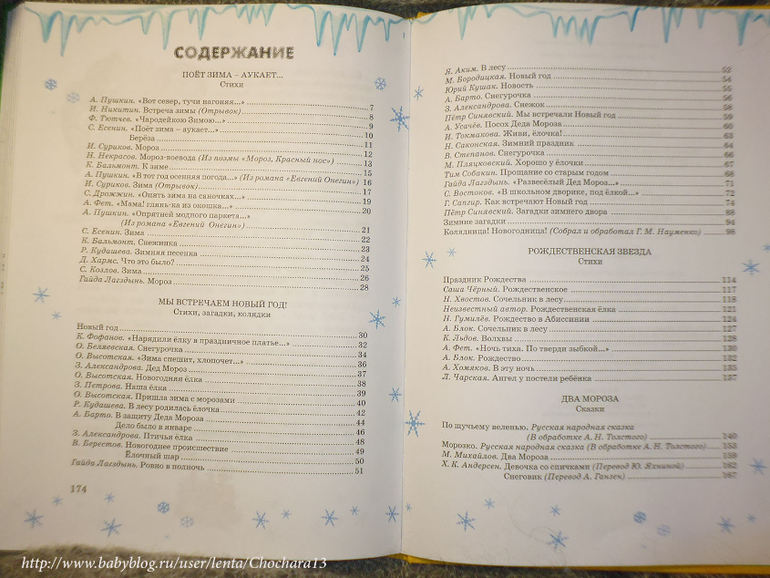 СОДЕРЖАНИЕ
ПОЁТ ЗИМА – АУКАЕТ...
Стихи
А. Пушкин. «Вот север, тучи нагоняя...» 7
И. Никитин. Встреча зимы (Отрывок) 8
Ф. Тютчев. «Чародейкою Зимою...» 9
С. Есенин. «Поёт зима – аукает...» 10
Берёза 11
И. Суриков. Мороз 12
Н. Некрасов. Мороз-воевода (Из поэмы «Мороз, Красный нос») 13
К. Бальмонт. К зиме 15
А. Пушкин. «В тот год осенняя погода...» (Из романа «Евгений Онегин») 16
И. Суриков. Зима (Отрывок) 17
С. Дрожжин. «Опять зима на саночках...» 19
А. Фет. «Мама! глянь-ка из окошка...» 20
А. Пушкин. «Опрятней модного паркета...»
(Из романа «Евгений Онегин») 21
С. Есенин. Зима 22
К. Бальмонт. Снежинка 23
Р. Кудашева. Зимняя песенка 24
Д. Хармс. Что это было? 25
С. Козлов. Зима 26
Гайда Лагздынь. Мороз 28
МЫ ВСТРЕЧАЕМ НОВЫЙ ГОД!
Стихи, загадки, колядки
Новый год 30
К. Фофанов. «Нарядили ёлку в праздничное платье...» 32
О. Беляевская. Снегурочка 34
О. Высотская. «Зима спешит, хлопочет...» 36
З. Александрова. Дед Мороз 37
О. Высотская. Новогодняя ёлка 38
З. Петрова. Наша ёлка 39
О. Высотская. Пришла зима с морозами 40
Р. Кудашева. В лесу родилась ёлочка 42
А. Барто. В защиту Деда Мороза 44
Дело было в январе 46
З. Александрова. Птичья ёлка 48
В. Берестов. Новогоднее происшествие 49
Ёлочный шар 50
Гайда Лагздынь. Ровно в полночь 51
174
Я. Аким. В лесу 52
М. Бородицкая. Новый год 54
Юрий Кушак. Новость 55
А. Барто. Снегурочка 56
З. Александрова. Снежок 58
Пётр Синявский. Мы встречали Новый год 59
А. Усачёв. Посох Деда Мороза 60
И. Токмакова. Живи, ёлочка! 63
Н. Саконская. Зимний праздник 64
В. Степанов. Снегурочка 66
М. Пляцковский. Хорошо у ёлочки 67
Тим Собакин. Прощание со старым годом 68
Гайда Лагздынь. «Развесёлый Дед Мороз...» 71
С. Востоков. «В школьном дворике, под ёлкой...» 72
Г. Сапгир. Как встречают Новый год 74
Пётр Синявский. Загадки зимнего двора 88
Зимние загадки 94
Колядница! Новогодница! (Собрал и обработал Г. М. Науменко) 98
РОЖДЕСТВЕНСКАЯ ЗВЕЗДА
Стихи
Праздник Рождества 114
Саша Чёрный. Рождественское 117
Н. Хвостов. Сочельник в лесу 118
Неизвестный автор. Рождественская ёлка 121
Н. Гумилёв. Рождество в Абиссинии 124
А. Блок. Сочельник в лесу 127
К. Льдов. Волхвы 128
А. Фет. «Ночь тиха. По тверди зыбкой...» 130
А. Блок. Рождество 132
А. Хомяков. В эту ночь 135
Л. Чарская. Ангел у постели ребёнка 137
ДВА МОРОЗА
Сказки
По щучьему веленью. Русская народная сказка
(В обработке А. Н. Толстого) 140
Морозко. Русская народная сказка (В обработке А. Н. Толстого) 153
М. Михайлов. Два Мороза 159
Х. К. Андерсен. Девочка со спичками (Перевод Ю. Яхниной) 162
Снеговик (Перевод А. Ганзен) 167
http://www.babyblog.ru/user/lenta/Chochara13